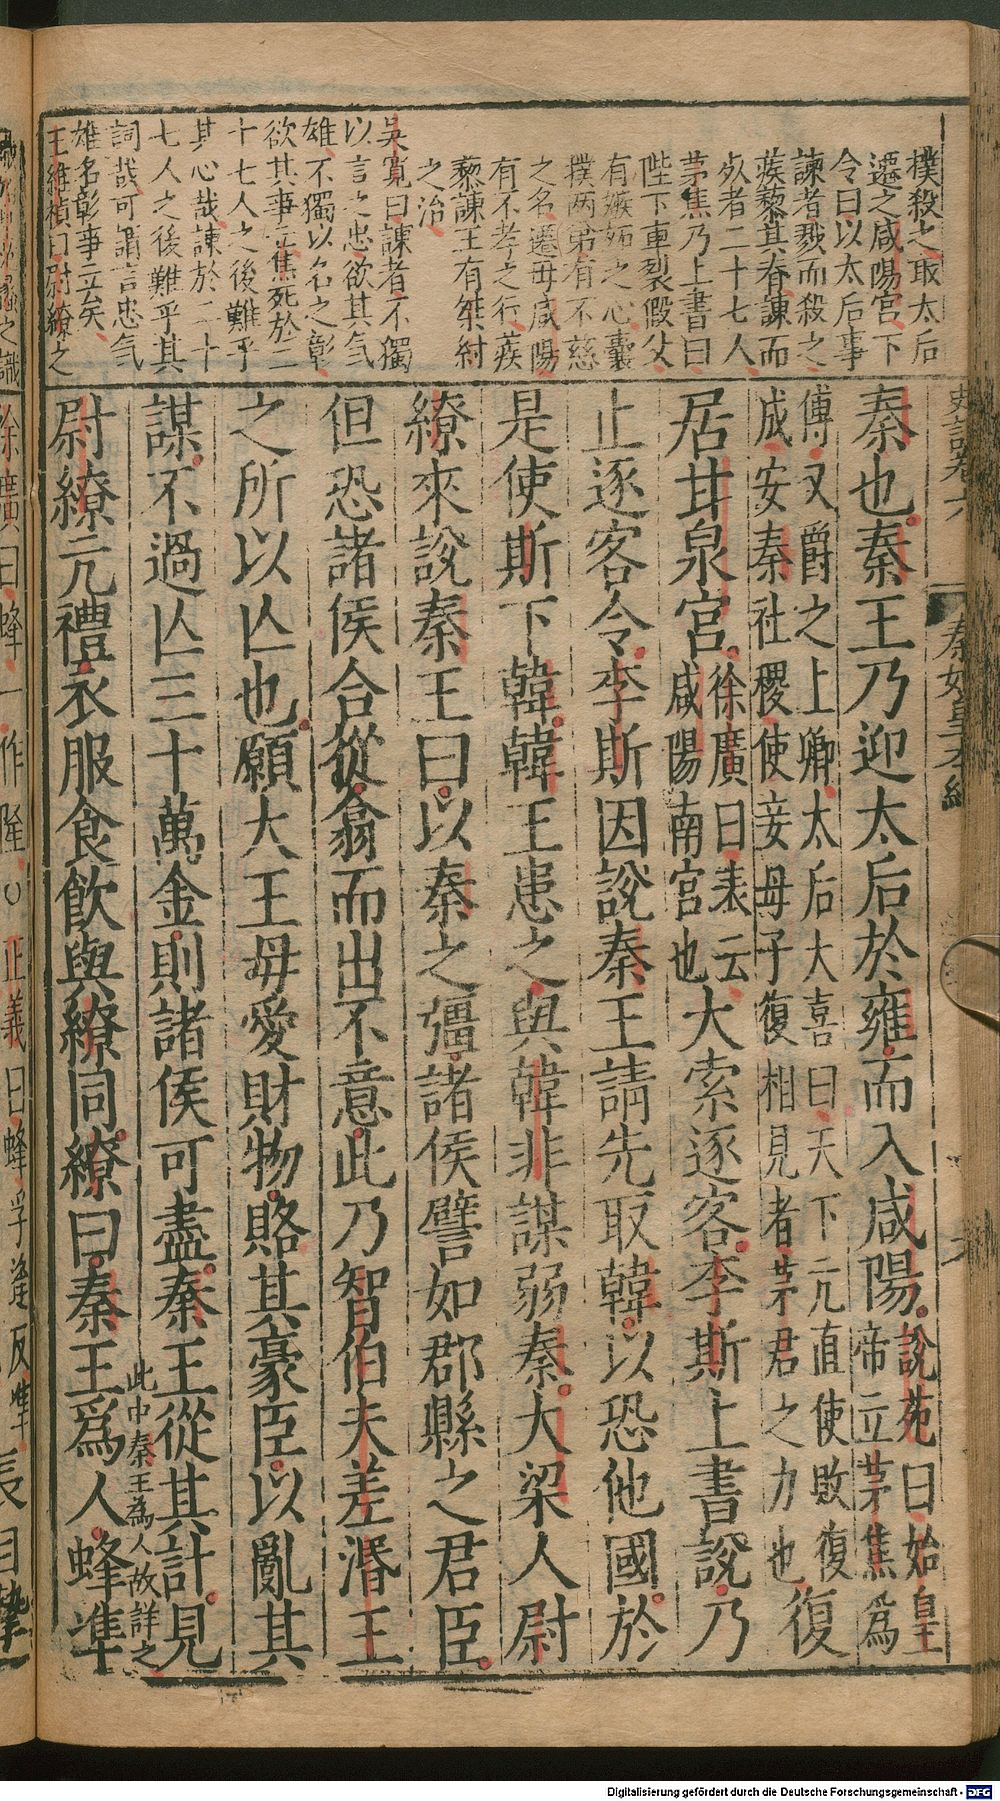 史記卷六
秦始皇本紀
六
撲殺之取太后
遷之咸陽宮下
令曰以太后事
諫者戮而殺之
蒺藜其脊諫而
死者二十七人
茅焦乃上書曰
陛下車裂假父
有嫉妬之心囊
撲兩弟有不慈
之名遷母咸陽
有不孝之行蒺
藜諫王有桀紂
之治
吳寬曰諫者不獨
以言之忠欲其氣
雄不獨以名之彰
欲其事立焦死於二
十七人之後難乎
其心哉諫於二十
七人之後難乎其
詞哉可謂言忠氣
雄名彰事立矣
王維楨曰尉繚之
秦也秦王乃迎太后於雍而入咸陽說苑曰始皇
帝立茅焦爲
傅又爵之上卿太后大喜曰天下亢直使敗復
成安秦社稷使妾母子復相見者茅君之力也復
居甘泉宮徐廣曰表云
咸陽南宮也大索逐客李斯上書說乃
止逐客令李斯因說秦王請先取韓以恐他國於
是使斯下韓韓王患之與韓非謀弱秦大梁人尉
繚來說秦王曰以秦之彊諸侯譬如郡縣之君臣
但恐諸侯合從翕而出不意此乃智伯夫差湣王
之所以亾也願大王毋愛財物賂其豪臣以亂其
謀不過亾三十萬金則諸侯可盡秦王從其計見
此中秦王為人故詳之
尉繚亢禮衣服食飲與繚同繚曰秦王爲人蜂準
徐廣曰蜂一作隆○正義曰蜂孚逢反準
長目摯
Digitalisierung gefördert durch die Deutsche Forschungsgemeinschaft - DFG